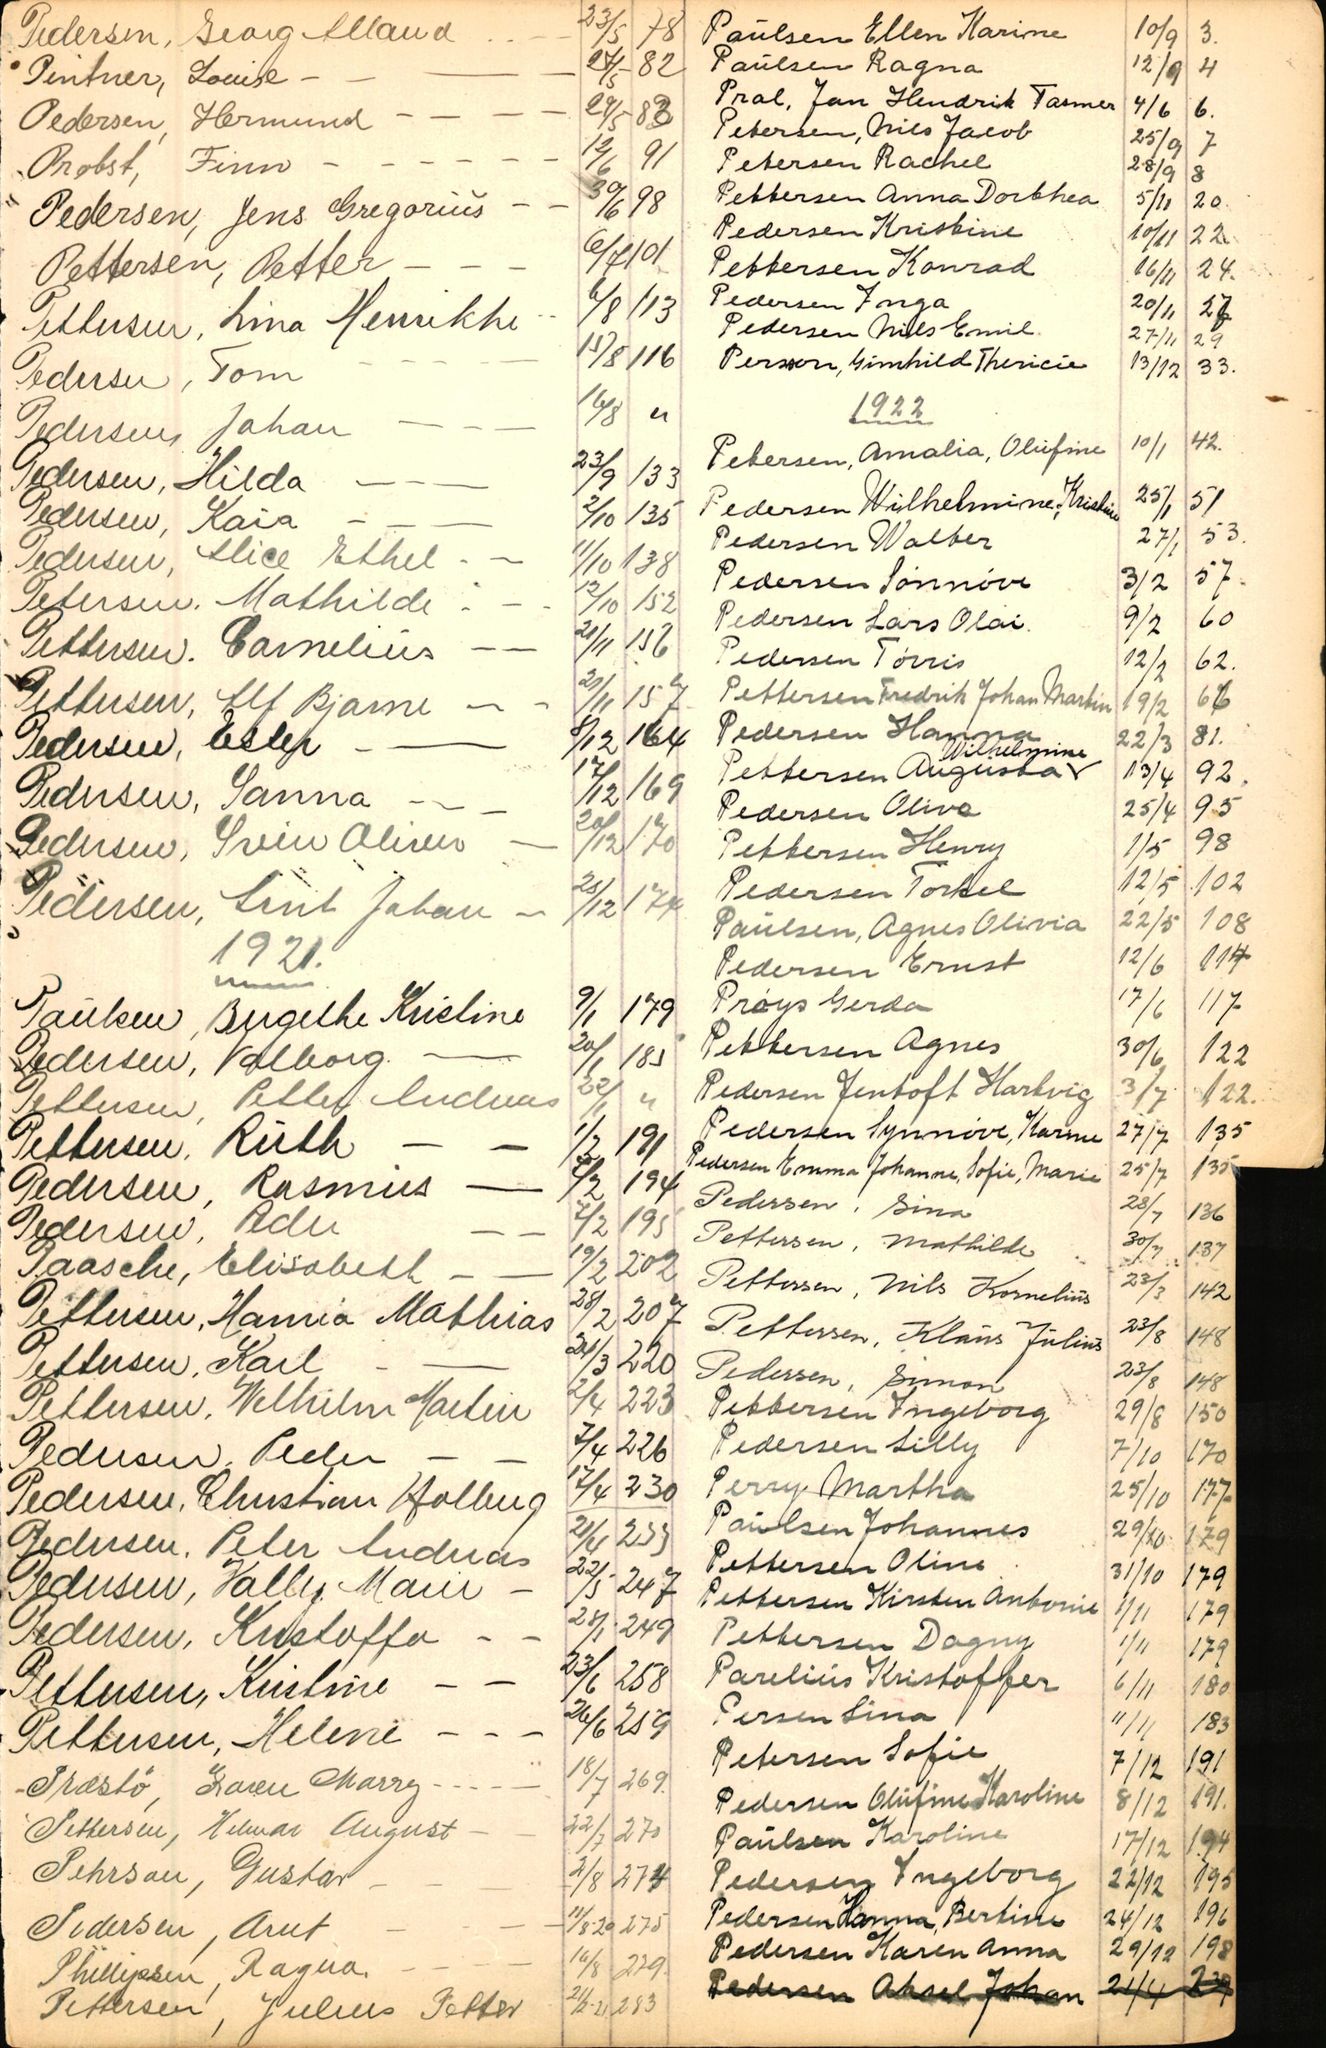 Pedersen, Georg Alland - - 23/5 78
Pintner, Louise - - - - 27/5 82
Pedersen, Hermund - - - - 29/5 83
Probst, Finn - - - - - - 12/6 91
Pedersen, Jens Gregorius - - 30/6 98
Pettersen, Petter - - - 6/7 101
Pettersen, Lina Henrikke - - 6/8 113
Pedersen, Tom - - - - 15/8 116
Pedersen, Johan - - - 16/8 "
Pedersen, Hilda - - - 23/9 133
Pedersen, Kaia - - - 2/10 135
Pedersen, Alice Ethel - - 11/10 138
Petersen, Mathilde - - - 12/10 152
Pettersen, Cornelius - - 20/11 156
Pettersen, Alf Bjarne - - 21/11 157
Pedersen, Esler - - 8/12 164
Pedersen, Sanna - - - 17/12 169
Pedersen, Svein Oliver - 20/12 170
Pedersen, Arnt Johan - 25/12 174
1921.
Paulsen, Bergethe Kristine 9/1 179
Pedersen, Valborg - - 20/1 185
Pettersen, Petter Andreas 22/1 "
Pettersen, Ruth - - 1/2 191
Pedersen, Rasmus - 7/2 194
Pedersen, Peder - - 7/2 195
Paasche, Elisabeth - - 19/2 202
Pettersen, Hannia Mathias 28/2 207
Pettersen, Karl - - 24/3 220
Pettersen, Wilhelm Martin 2/4 223
Pedersen, Peder - - 7/4 226
Pedersen, Christian Holberg 17/4 230
Pedersen, Peter Andreas 21/4 233
Pedersen, Vally Marie - 22/5 247
Pedersen, Kristoffa - - 28/ 249
Pettersen, Kristine - - 23/6 258
Pettersen, Helene - - - 26/6 259
Præstö, Karen Marry - - - - 18/7 269.
Pettersen, Helmar August - - 22/7 270
Pehrson, Gustav - - - 2/8 274
Pedersen, Arnt - - - 11/8-20 275
Phillipsen, Ragna. - - - - 16/8 279.
Pettersen, Julius Petter 283
Paulsen Ellen Karine 10/9 3.
Paulsen Ragna 12/9 4
Pral, Jan Hendrik Tasmer 4/6 6.
Petersen, Nils Jacob 25/9 7
Petersen Rachel 28/9 8
Pettersen Anna Dorthea 5/11 20
Pedersen Kristine 10/11 22.
Pettersen Konrad 16/11 24.
Pedersen Inga 20/11 27
Pedersen Nils Emil 27/11 29
Person, Gunhild Thericie 13/12 33.
1922
Petersen, Amalia, Olufine 10/1 42.
Pedersen Wilhelmine, Kristine 25/1 51
Pedersen Walter 27/1 53.
Pedersen Sønnøve 3/2 57.
Pedersen Lars Olai. 9/2 60
Pedersen Tørris 12/2 62.
Pettersen Fredrik Johan Martin 19/2 66
Pedersen Hanna 22/3 81.
Pettersen Augusta Wilhelmine 13/4 92.
Pedersen Olive 25/4 95
Pettersen Henry 1/5 98
Pedersen Torkel 12/5 102
Paulsen, Agnes Olivia 22/5 108
Pedersen Ernst 12/6 114
Prøys Gerda 17/6 117
Pettersen Agnes 30/6 122
Pedersen Jentoft Hartvig 3/7 122.
Pedersen Synnøve, Karine 27/7 135
Pedersen Emma Johanne, Sofie, Marie 25/7 135
Pedersen, Sina 28/7 136
Pettersen, Mathilde 30/7 137
Pettersen, Nils Kornelius 23/3 142
Pettersen, Klaus Julius 23/8 148
Pedersen, Simon 23/8 148
Pettersen Ingeborg 29/8 150
Pedersen Lilly 7/10 170
Perry Martha 25/10 177
Paulsen Johannes 29/10 179
Pettersen Oline 31/10 179
Pettersen Kirsten Antonie 1/11 179
Pettersen Dagny 1/11 179
Parelius Kristoffer 6/11 180
Persen Lina 11/11 183
Petersen Sofie 7/12 191
Pedersen Olufine Karoline 8/12 191.
Paulsen Karoline 17/12 194
Pedersen Ingeborg 22/12 195
Pedersen Hanna, Bertine 24/12 196
Pedersen Karen Anna 29/12 198
Pedersen Aksel Johan 21/4